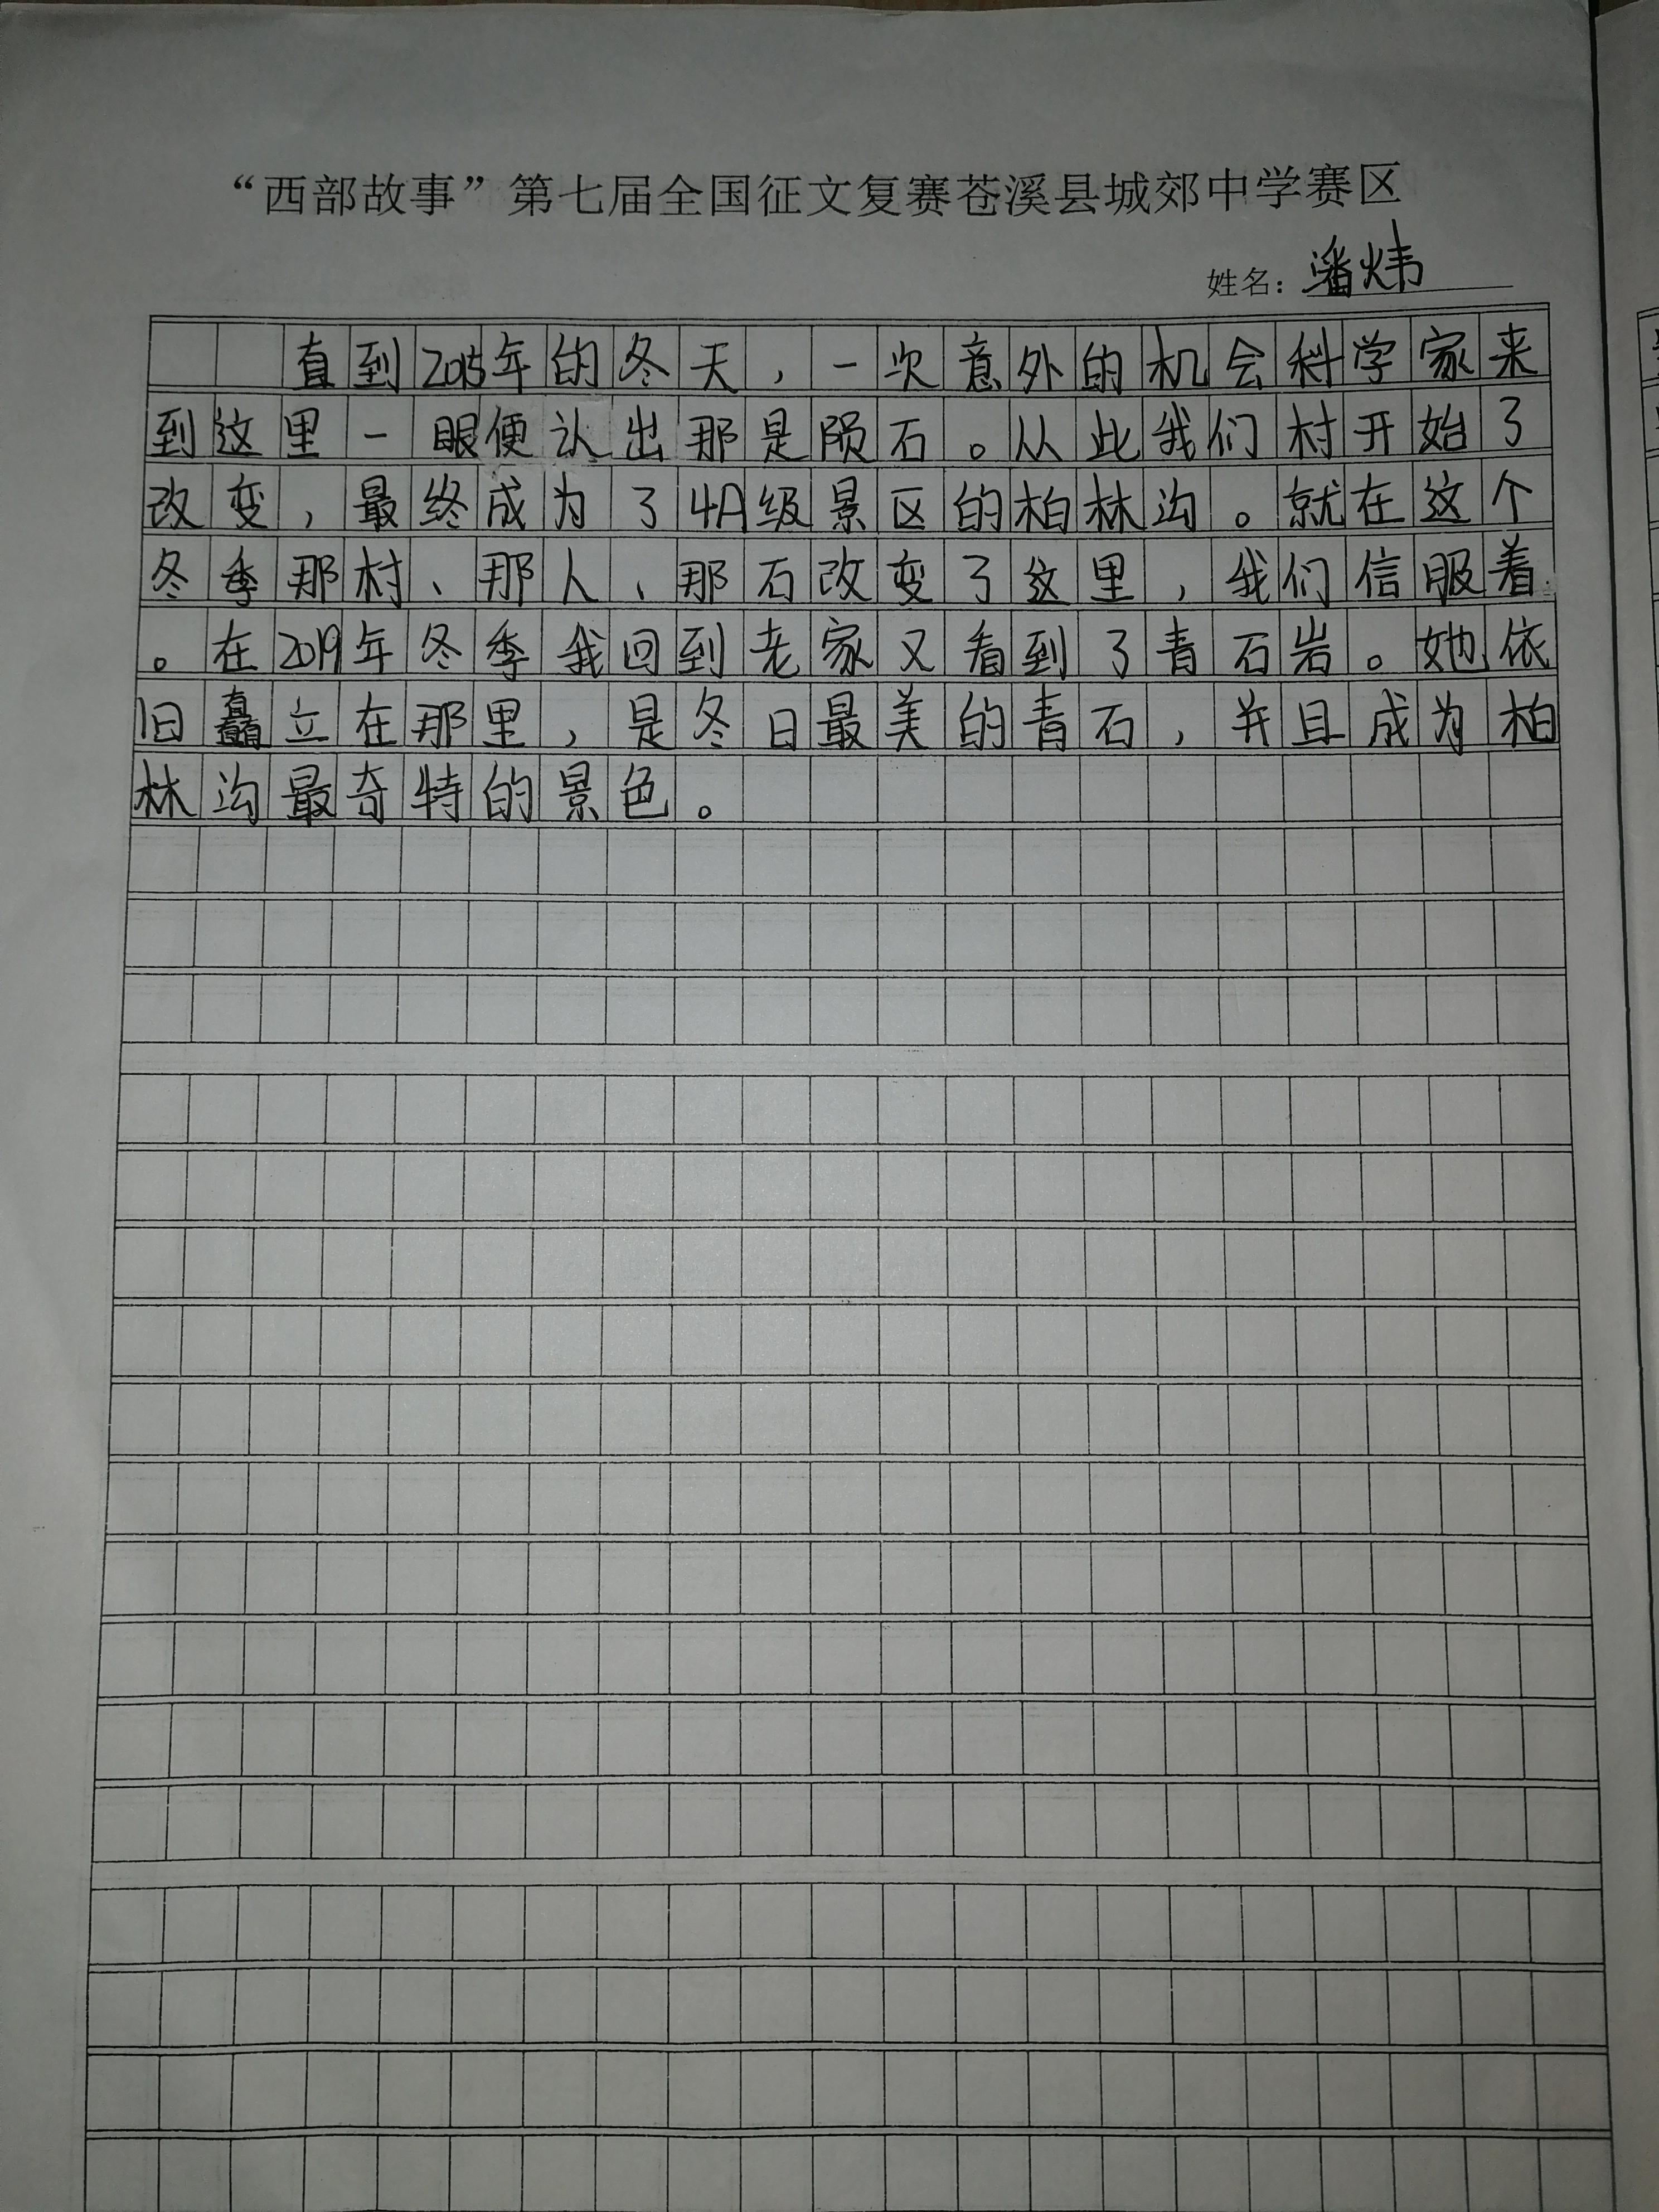 “西部故事”第七届全国征文复赛苍溪县城郊中学赛区
姓名：潘炜
直到2015年的冬天，一次意外的机会科学家来
到这里一眼便认出那是陨石。从此我们村开始了
改变，最终成为了4A级景区的柏林沟。就在这个
冬季那村、那人、那石改变了这里，我们信服着
。在2019年冬季我回到老家又看到了青石岩。她依
旧矗立在那里，是冬日最美的青石，并且成为柏
林沟最奇特的景色。